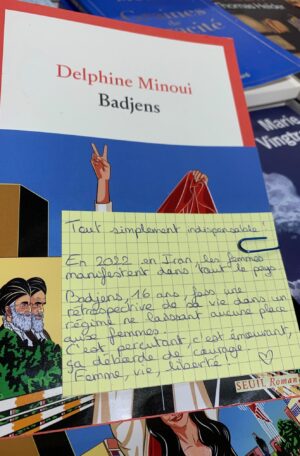 Thomas Helder
Cuisines
de
cité
Marie
Vingt
Delphine Minoui
Badjens
Tout simplement indispensable !
En 2022 en Iran, les femmes
manifestent dans tout le pays.
Badjens, 16 ans, fait une
rétrospective de sa vie dans un
régime ne laissant aucune place
aux femmes.
C'est percutant, c'est émouvant,
ça déborde de courage.
Femme, vie, liberté !
SEUIL Roman